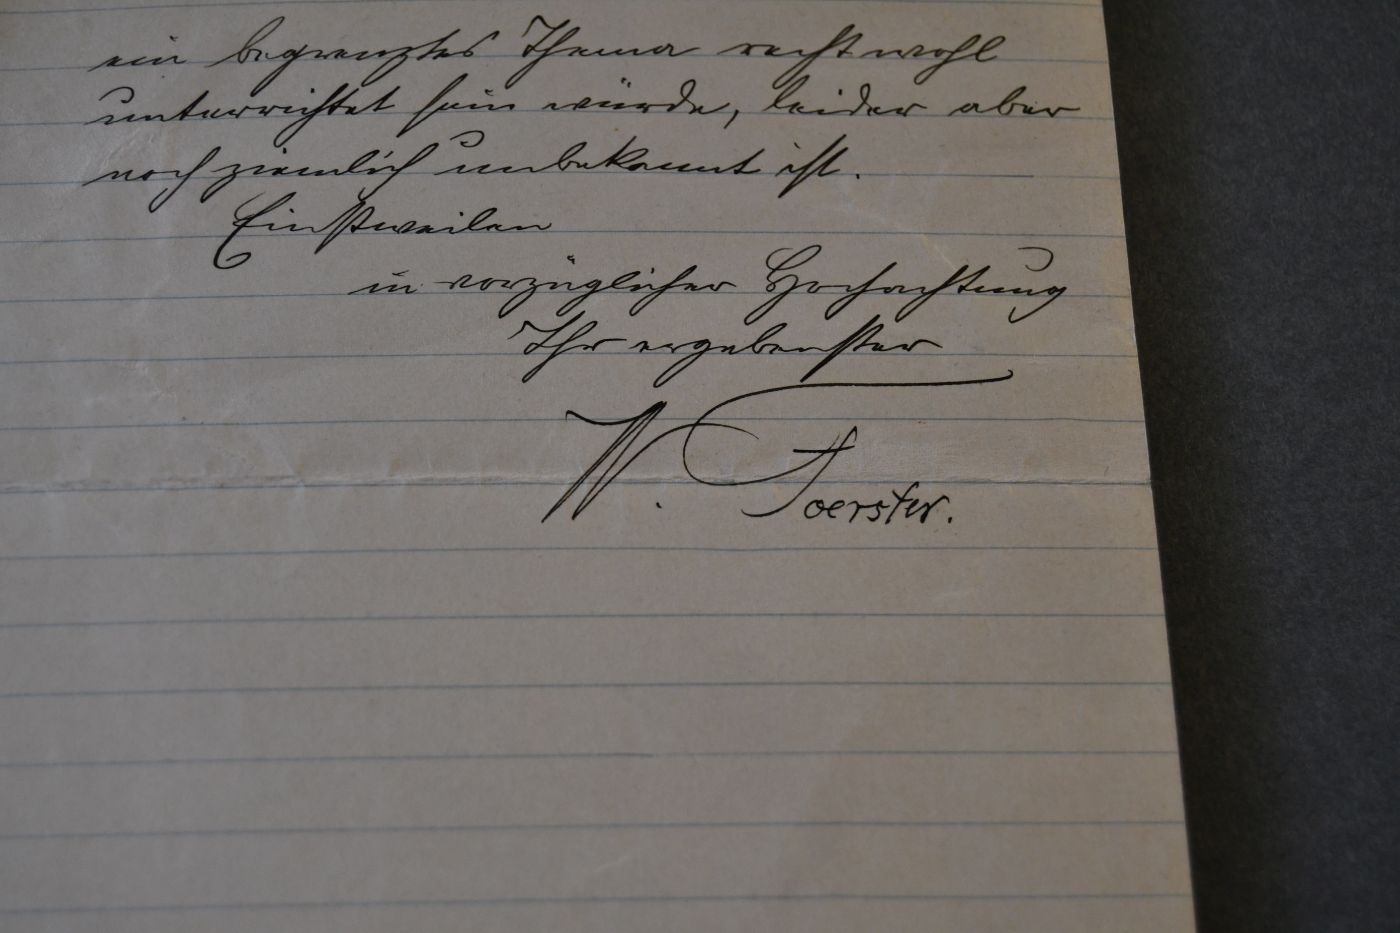 ein begrenztes Thema recht wohl
unterrichtet sein würde, leider aber
noch ziemlich unbekannt ist.
Einstweilen
in vorzüglicher Hochachtung
Ihr ergebenster
W. Foerster.